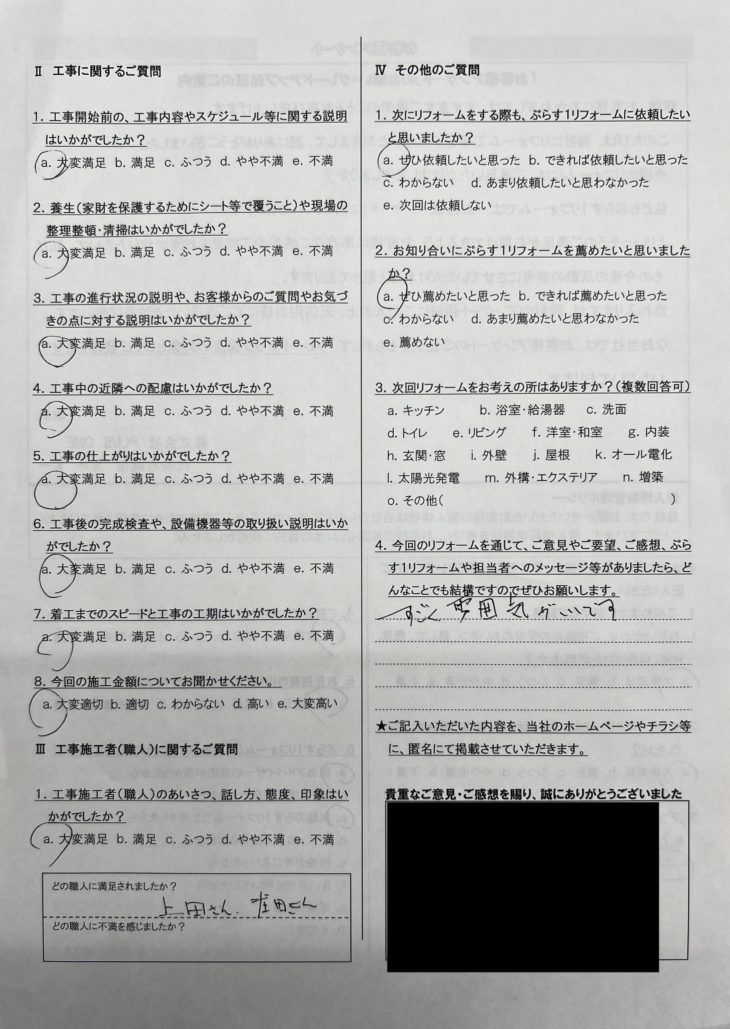 Ⅱ 工事に関するご質問
1. 工事開始前の、工事内容やスケジュール等に関する説明
はいかがでしたか？
a. 大変満足 b. 満足 c. ふつう d. やや不満 e. 不満
2. 養生（家財を保護するためにシート等で覆うこと）や現場の
整理整頓・清掃はいかがでしたか？
a. 大変満足 b. 満足 c. ふつう d. やや不満 e. 不満
3. 工事の進行状況の説明や、お客様からのご質問やお気づ
きの点に対する説明はいかがでしたか？
a. 大変満足 b. 満足 c. ふつう d. やや不満 e. 不満
4. 工事中の近隣への配慮はいかがでしたか？
a. 大変満足 b. 満足 c. ふつう d. やや不満 e. 不満
5. 工事の仕上がりはいかがでしたか？
a. 大変満足 b. 満足 c. ふつう d. やや不満 e. 不満
6. 工事後の完成検査や、設備機器等の取り扱い説明はいか
がでしたか？
a. 大変満足 b. 満足 c. ふつう d. やや不満 e. 不満
7. 着工までのスピードと工事の工期はいかがでしたか？
a. 大変満足 b. 満足 c. ふつう d. やや不満 e. 不満
8. 今回の施工金額についてお聞かせください。
a. 大変適切 b. 適切 c. わからない d. 高い e. 大変高い
Ⅲ 工事施工者（職人）に関するご質問
1. 工事施工者（職人）のあいさつ、話し方、態度、印象はい
かがでしたか？
a. 大変満足 b. 満足 c. ふつう d. やや不満 e. 不満
どの職人に満足されましたか？
上田さん、庄田さん
どの職人に不満を感じましたか？
Ⅳ その他のご質問
1. 次にリフォームをする際も、ぷらす1リフォームに依頼したい
と思いましたか？
a. ぜひ依頼したいと思った b. できれば依頼したいと思った
c. わからない d. あまり依頼したいと思わなかった
e. 次回は依頼しない
2. お知り合いにぷらす1リフォームを薦めたいと思いました
か？
a. ぜひ薦めたいと思った b. できれば薦めたいと思った
c. わからない d. あまり薦めたいと思わなかった
e. 薦めない
3. 次回リフォームをお考えの所はありますか？（複数回答可）
a. キッチン b. 浴室・給湯器 c. 洗面
d. トイレ e. リビング f. 洋室・和室 g. 内装
h. 玄関・窓 i. 外壁 j. 屋根 k. オール電化
l. 太陽光発電 m. 外構・エクステリア n. 増築
o. その他（ ）
4. 今回のリフォームを通じて、ご意見やご要望、ご感想、ぷら
す1リフォームや担当者へのメッセージ等がありましたら、ど
んなことでも結構ですのでぜひお願いします。
すごく雰囲気がいいです
★ご記入いただいた内容を、当社のホームページやチラシ等
に、匿名にて掲載させていただきます。
貴重なご意見・ご感想を賜り、誠にありがとうございました